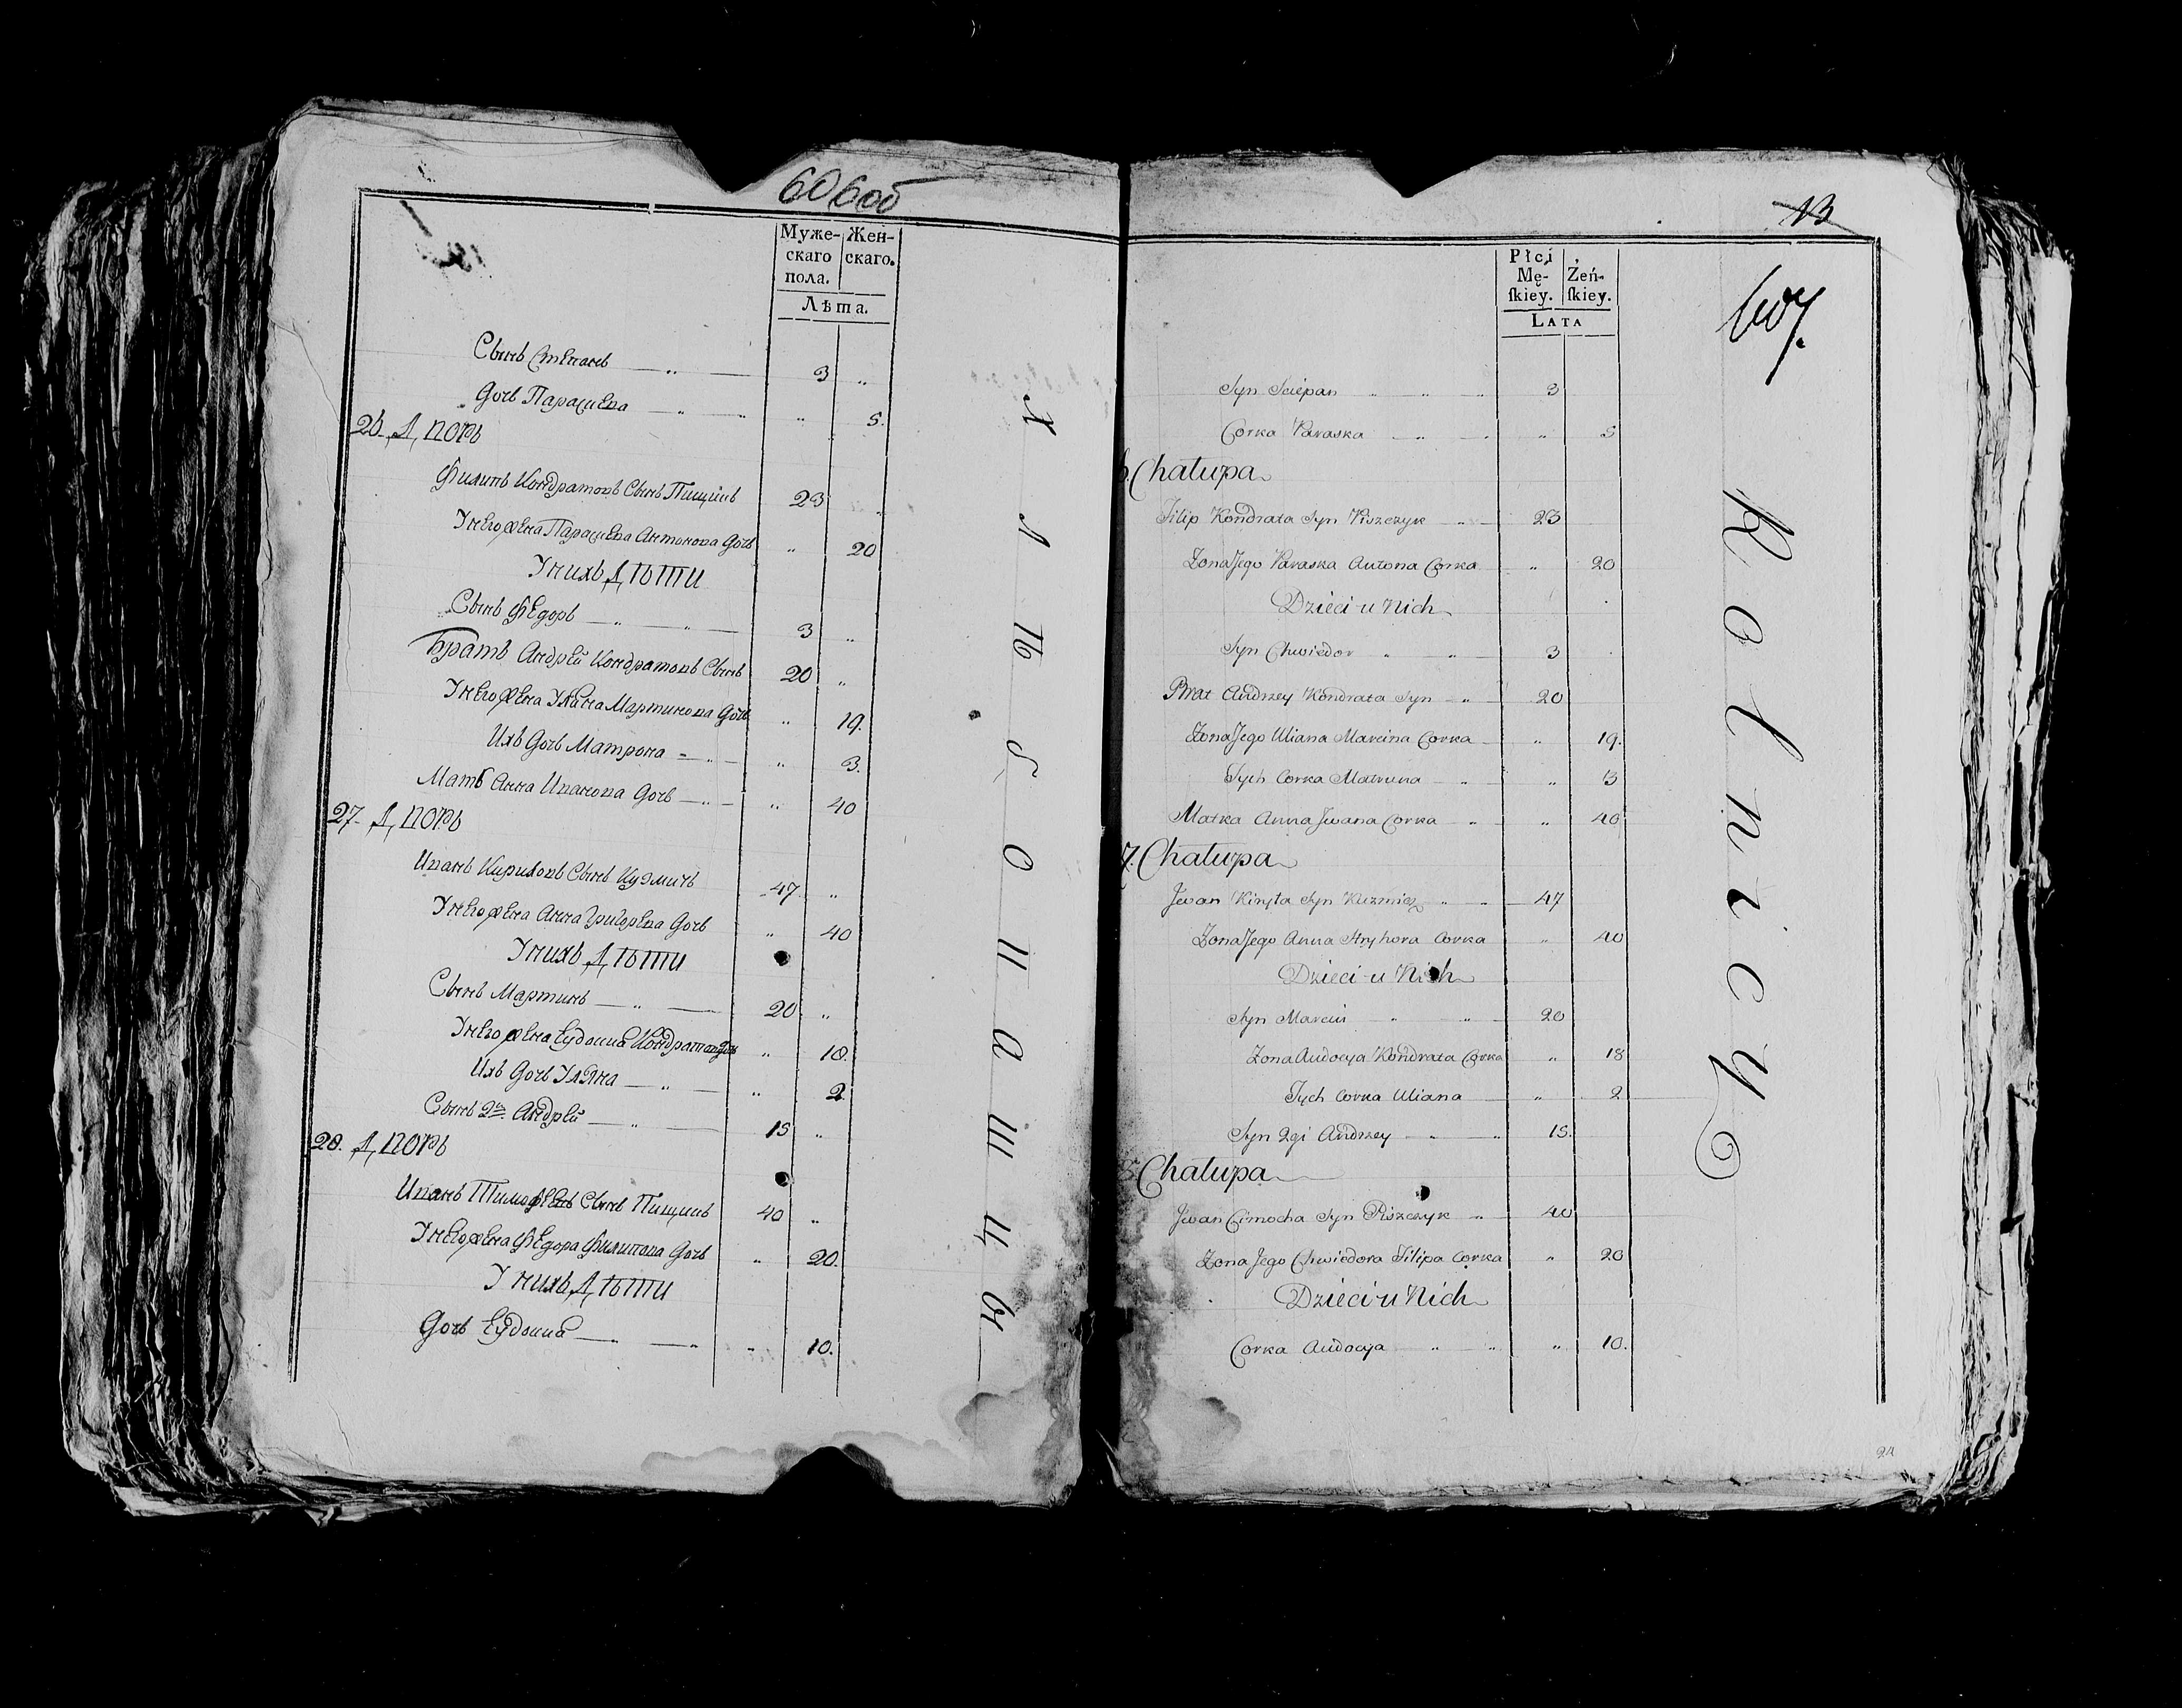 606об
Муже- Жен-
скаго скаго.
пола.
Лѣта.
Сынъ Степанъ — „ — 3 „
Дочь Парасцева — „ — „ 5.
26. Дворъ
Филипъ Кондратовъ Сынъ Пищикъ 23 „
У него жена Парасцева Антонова Дочь „ 20
У нихъ Дѣти
Сынъ Федоръ — „ „ — 3 „
Братъ Андрей Кондратовъ Сынъ 20 „
У него жена Уляна Мартинова Дочь „ 19.
Ихъ Дочь Матрона — „ — „ 3.
Мать Анна Иванова Дочь — „ — „ 40
27. Дворъ
Иванъ Кириловъ Сынъ Кузмичъ 47 „
У него жена Анна Григорева Дочь „ 40
У нихъ Дѣти
Сынъ Мартинъ — „ — 20 „
У него жена Еудокиа Кондратова Дочь „ 18.
Ихъ Дочь Уляна — „ — „ 2
Сынъ 2й Андрей — „ — 15 „
28. Дворъ
Иванъ Тимофеевъ Сынъ Пищикъ 40 „
У него жена Федора Филипова Дочь „ 20.
У нихъ Дѣти
Дочь Еудокиа — „ — „ „ 10.
13
607.
Płci
Mę- Żeń-
ſkiey. ſkiey.
LATA
Syn Sciepan „ — „ — „ 3
Corka Paraska — „ — „ „ 5
Chałupa
Filip Kondrata Syn Piszczyk — „ — 23
Zona Jego Paraska Antona Corka „ 20
Dzieci u Nich
Syn Chwiedor „ „ 3
Brat Andrzey Kondrata Syn — „ — 20
Zona Jego Uliana Marcina Corka — „ 19.
Tych Corka Matruna — „ — „ 3
Matka Anna Jwana Corka — „ „ 40
7. Chałupa
Jwan Kiryła Syn Kuzmicz „ — „ 47
Zona Jego Anna Hryhora Corka „ 40
Dzieci u Nich
Syn Marcin „ „ 20
Zona Audocya Kondrata Corka „ 18
Tych Corka Uliana „ 2
Syn 2gi Andrzey — „ — „ 15.
8. Chałupa
Jwan Cimocha Syn Piszczyk „ 40
Zona Jego Chwiedora Filipa Corka „ 20
Dzieci u Nich
Corka Audocya „ — „ „ 10.
Kolnicy